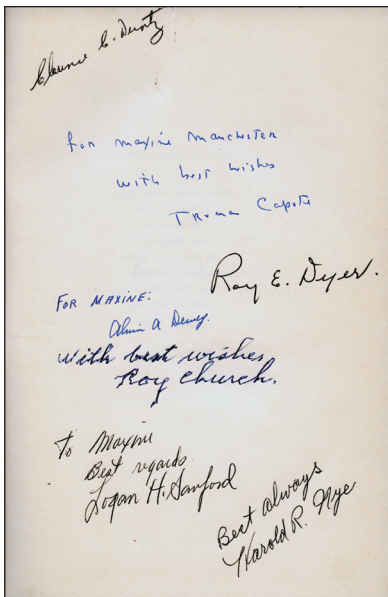 Clarence C. Duntz
for Maxine Manchester
with best wishes
Truman Capote
Roy E. Dyer.
FOR MAXINE:
Alvin A Dewey.
With best wishes,
Roy Church.
To Maxine
Best regards
Logan H. Sanford
Best always
Harold R. Nye